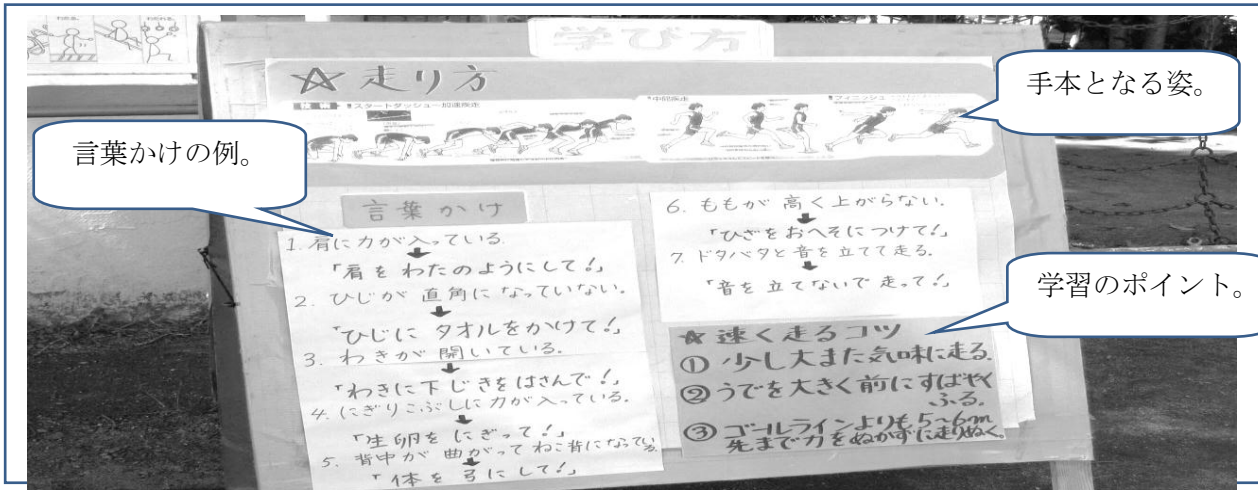 学び方
☆走り方
技術
スタートダッシュー加速疾走
中間疾走
フィニッシュ
手本となる姿。
言葉かけの例。
言葉かけ
1. 肩に力が入っている
「肩をわたのようにして!」
2. ひじが直角になっていない。
「ひじにタオルをかけて!」
3. わきが開いている。
「わきに下じきをはさんで!」
4. にぎりこぶしに力が入っている。
「生卵をにぎって!」
5. 背中が曲がってねこ背になっている
「体を弓にして!」
6. ももが高く上がらない。
「ひざをおへそにつけて!」
7. ドタバタと音を立てて走る。
「音を立てないで走って!」
学習のポイント。
☆速く走るコツ
① 少し大また気味に走る。
② うでを大きく前にすばやく
ふる。
③ ゴールラインよりも5~6m
先まで力をぬかずに走りぬく。